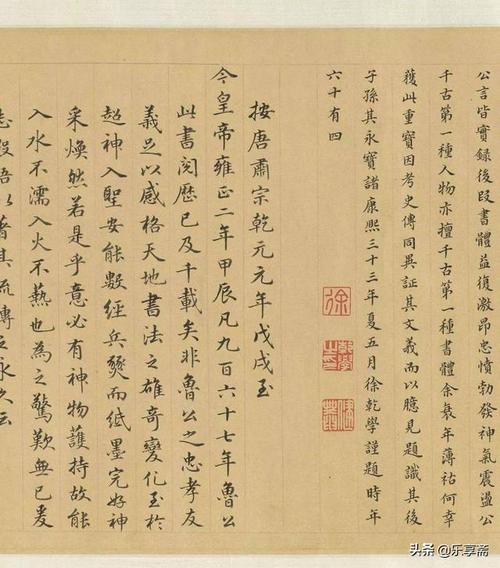 公言皆實録後段書體益復激昂忠憤勃發神氣震盪公
千古第一種人物亦擅千古第一種書體余衰年薄祜何幸
獲此重寶因考史傳同異証其文義而以臆見題識其後
子孫其永寶諸康熙三十三年夏五月徐乾學謹題時年
六十有四
徐
乾學
之印
健菴
按唐肅宗乾元元年戊戌至
今皇帝雍正二年甲辰凡九百六十七年魯公
此書閱歷已及千載矣非魯公之忠孝友
義足以感格天地書法之雄奇變化至於
超神入聖安能數經兵燹而紙墨完好神
采煥然若是乎意必有神物護持故能
入水不濡入火不爇也為之驚歎無已爰
志段語以著其流傳之永久云
头条 @乐享斋